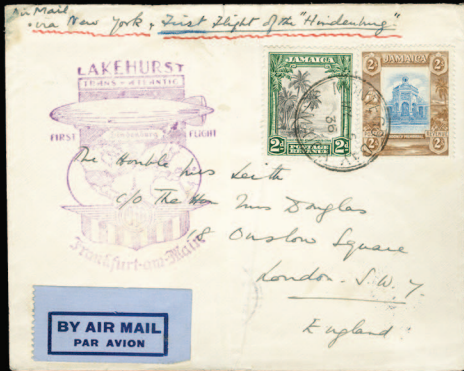 Air Mail
via New York & First Flight of the "Hindenburg"
LAKEHURST
TRANS-ATLANTIC
FIRST FLIGHT
Frankfurt-am-Main
JAMAICA
2d 2d
POSTAGE
REVENUE
JAMAICA
2/- 2/-
36
The Honble Miss Leith
c/o The Hon Mrs Douglas
Onslow Square
London. S.W.7.
England
BY AIR MAIL
PAR AVION